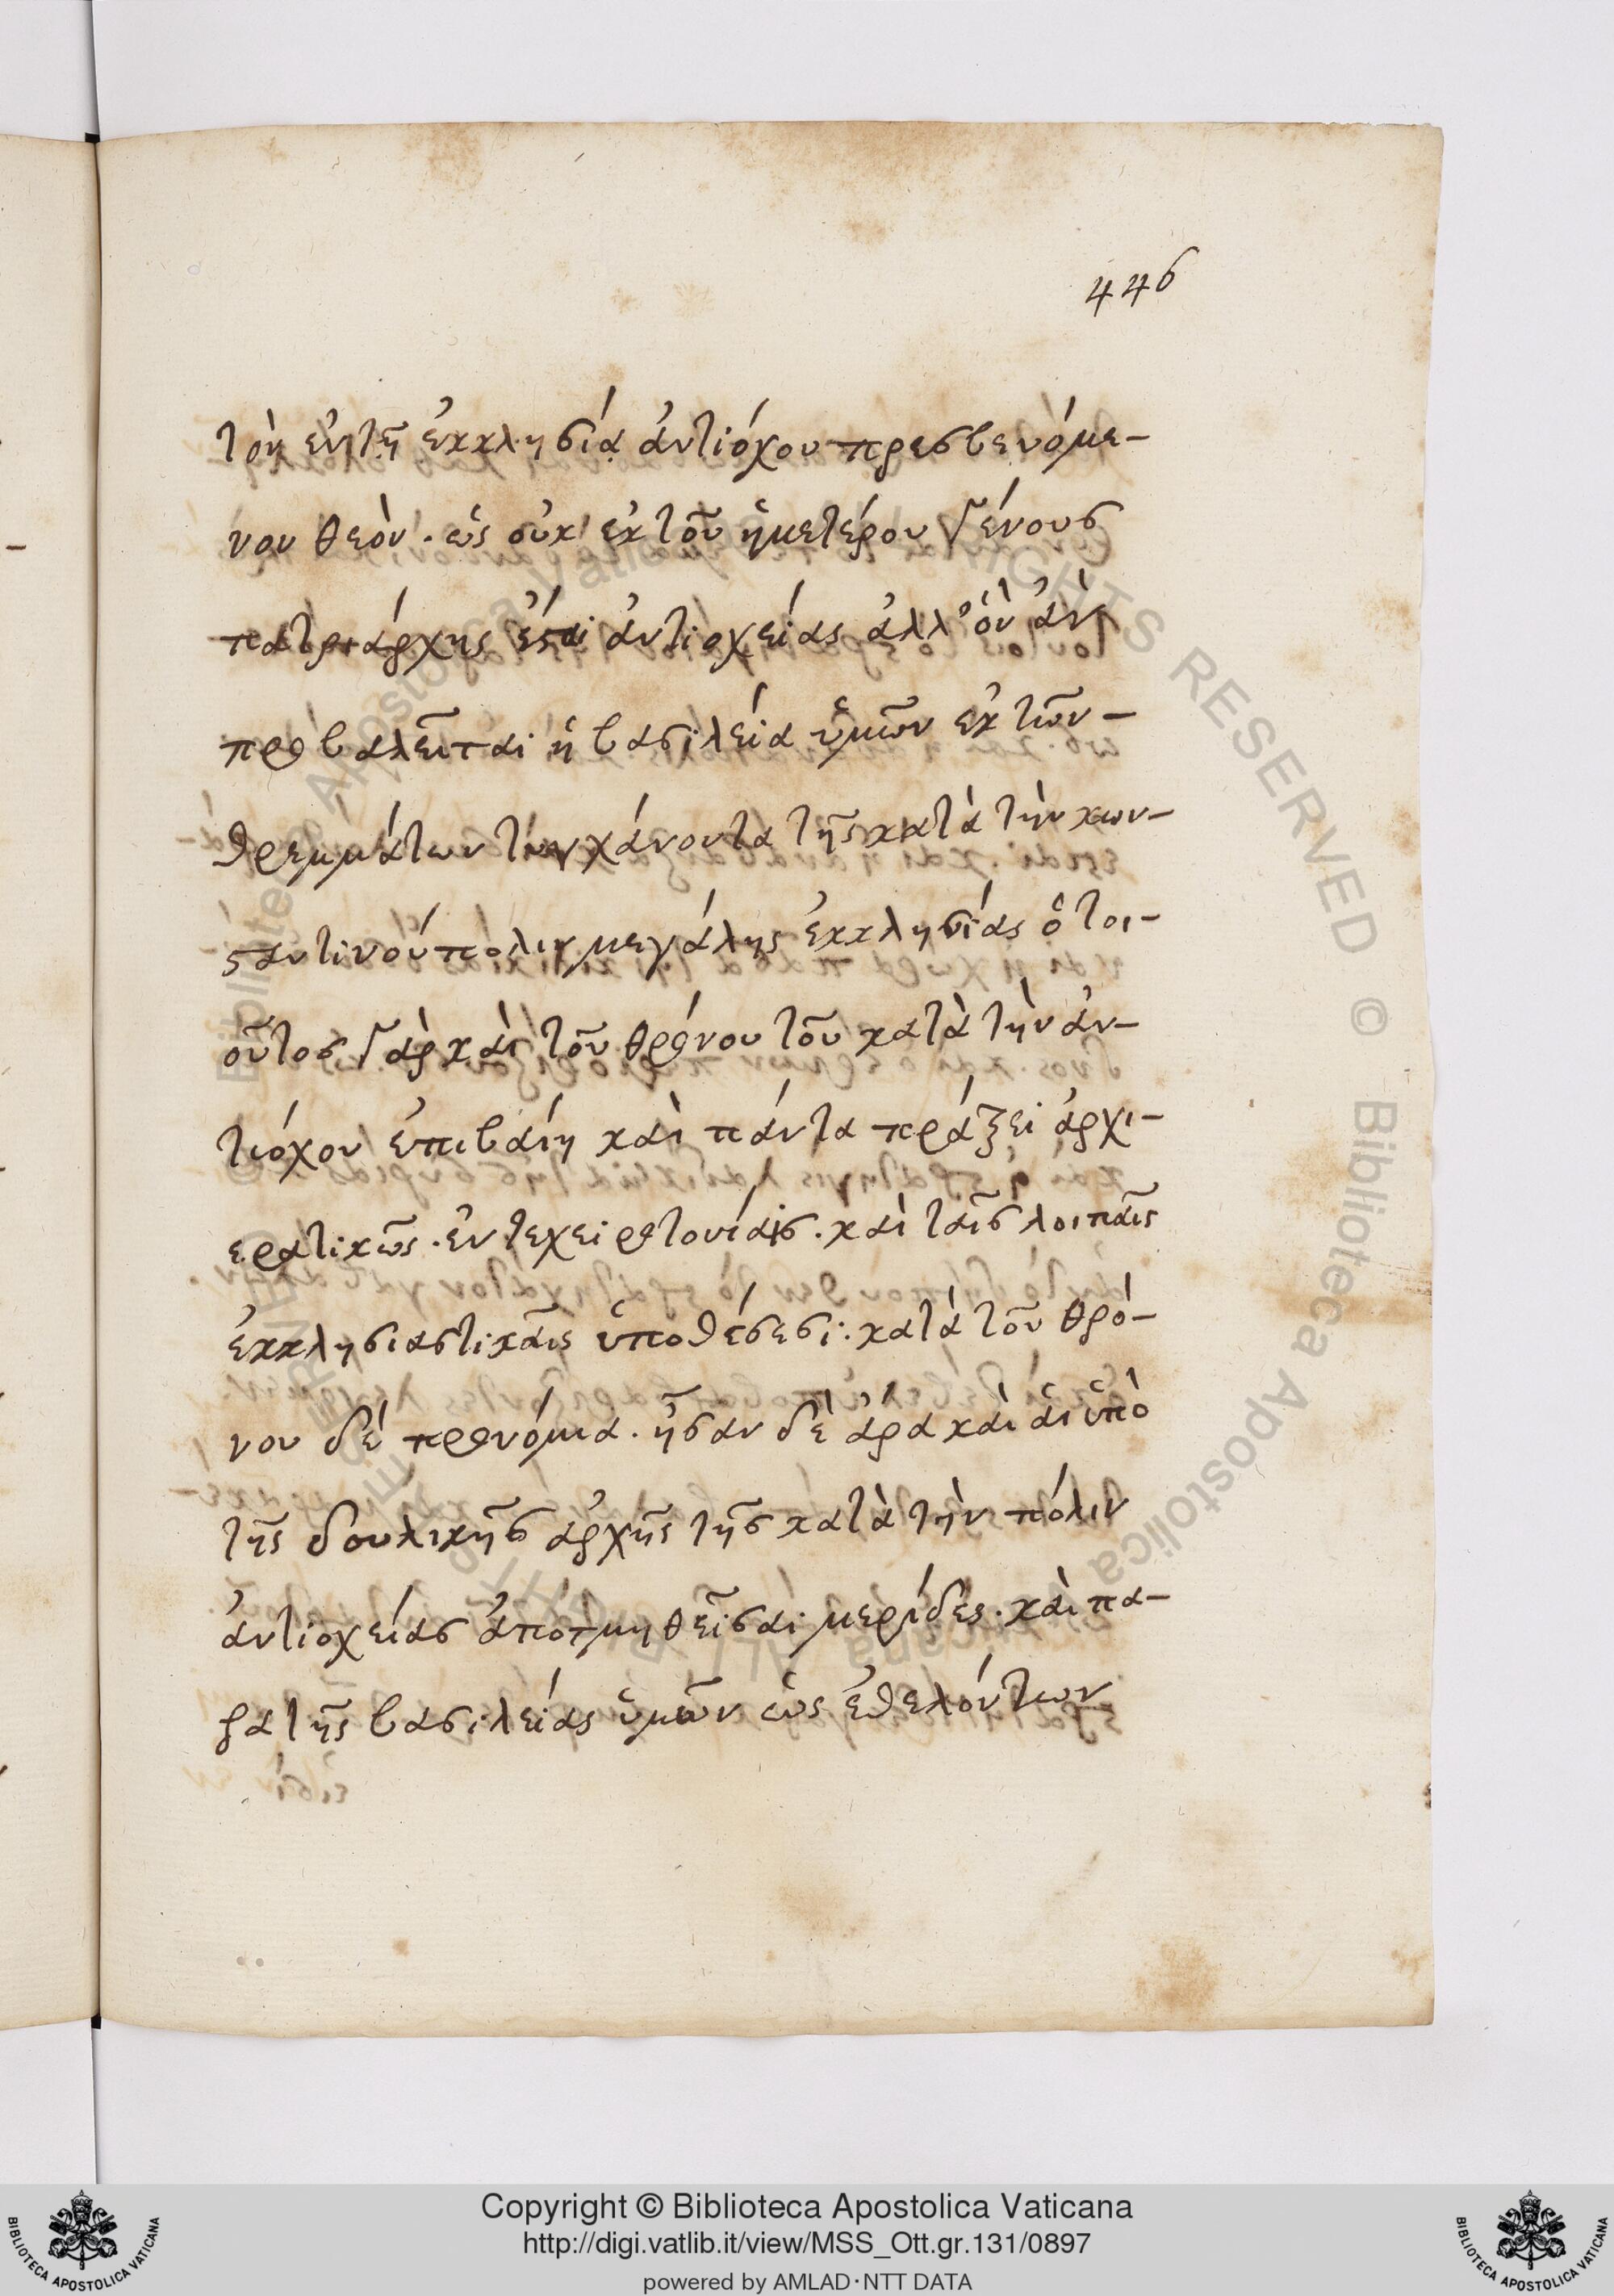 446
τὸν ἐν τῆ ἐκκλησία ἀντιόχου πρεσβευόμε-
νον θεὸν. ὡς οὐκ ἐκ τοῦ ἡμετέρου γένους
πατριάρχης ἔσται ἀντιοχείας ἀλλ' ὃν ἂν
προβαλεῖται ἡ βασιλεία ὑμῶν ἐκ τῶν-
θρεμμάτων τυγχάνοντα τῆς κατὰ τὴν κων-
σταντινούπολιν μεγάλης ἐκκλησίας ὁ τοι-
οῦτος γὰρ καὶ τοῦ θρόνου τοῦ κατὰ τὴν ἀν-
τιόχου ἐπιβαίη καὶ πάντα πράξει ἀρχι-
ερατικῶς. ἔν τε χειροτονίαις. καὶ ταῖς λοιπαῖς
ἐκκλησιαστικαῖς ὑποθέσεσι. κατὰ τοῦ θρό-
νου δὲ προνόμια. ἦσαν δὲ ἄρα καὶ αἱ ὑπὸ
τῆς δουλικῆς ἀρχῆς τῆς κατὰ τὴν πόλιν
ἀντιοχείας ἀποτμηθεῖσαι μερίδες. καὶ πα-
ρα τῆς βασιλείας ὑμῶν ὡς ἐθελόντων
Copyright © Biblioteca Apostolica Vaticana
http://digi.vatlib.it/view/MSS_Ott.gr.131/0897
powered by AMLAD·NTT DATA
BIBLIOTECA APOSTOLICA VATICANA
BIBLIOTECA APOSTOLICA VATICANA